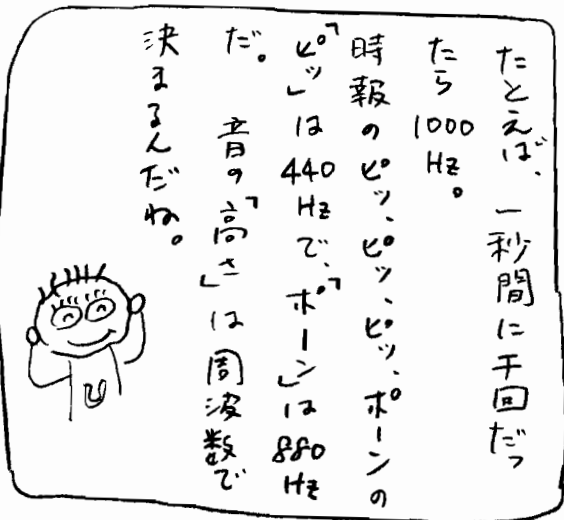 たとえば、一秒間に千回だっ
たら1000Hz。
時報のピッ、ピッ、ピッ、ポーンの
「ピッ」は440Hzで、「ポーン」は880Hz
だ。 音の「高さ」は周波数で
決まるんだね。
U